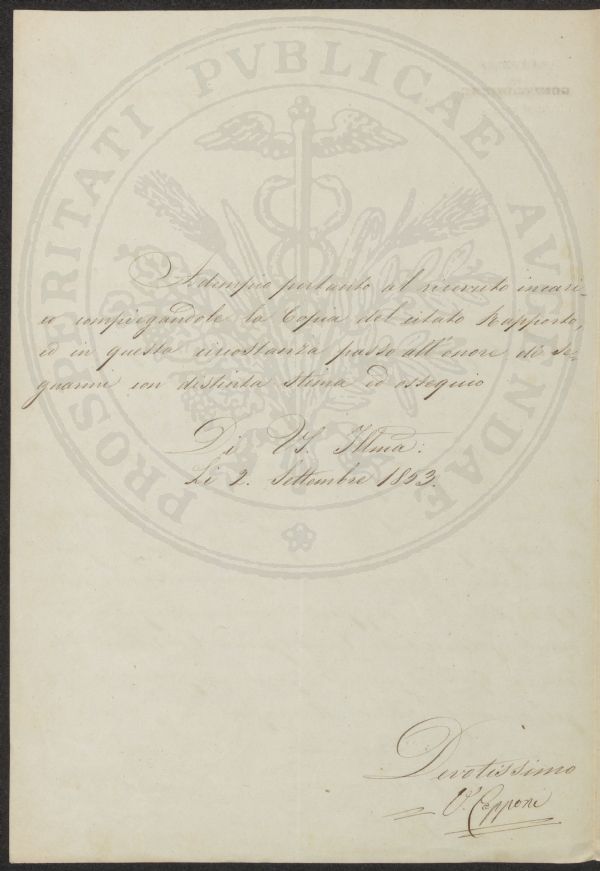 PROSPERITATI PVBLICAE AVGENDAE
Adempio pertanto al ricevuto incari-
co compiegandole la Copia del citato Rapporto,
ed in questa circostanza passo all'onore di se-
gnarmi con distinta stima ed ossequio
Di VS. Illma:
Li 2. Settembre 1853.
Devotissimo
V. Capponi